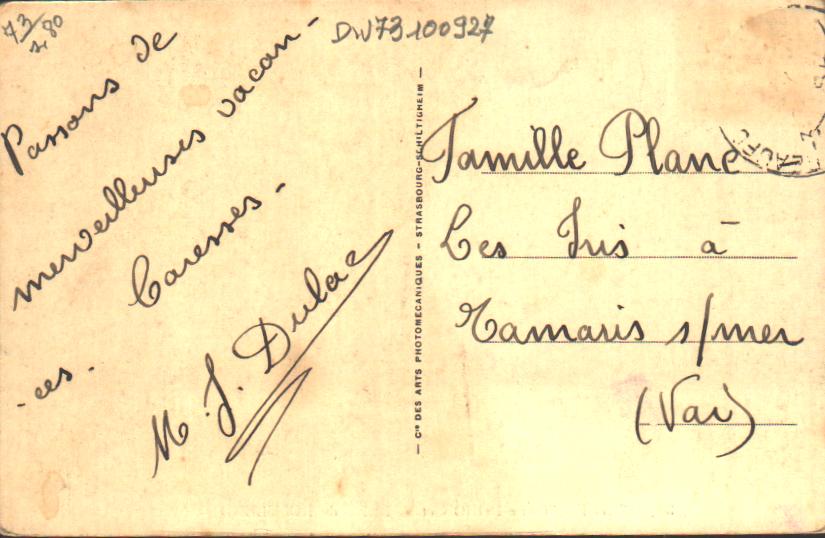 73
2,80
DW73100927
Passons de
merveilleuses vacan-
-ces. Caresses-
M. J. Dulac
Cie DES ARTS PHOTOMECANIQUES - STRASBOURG-SCHILTIGHEIM
Famille Planc
Les Iris à
Tamaris s/mer
(Var)